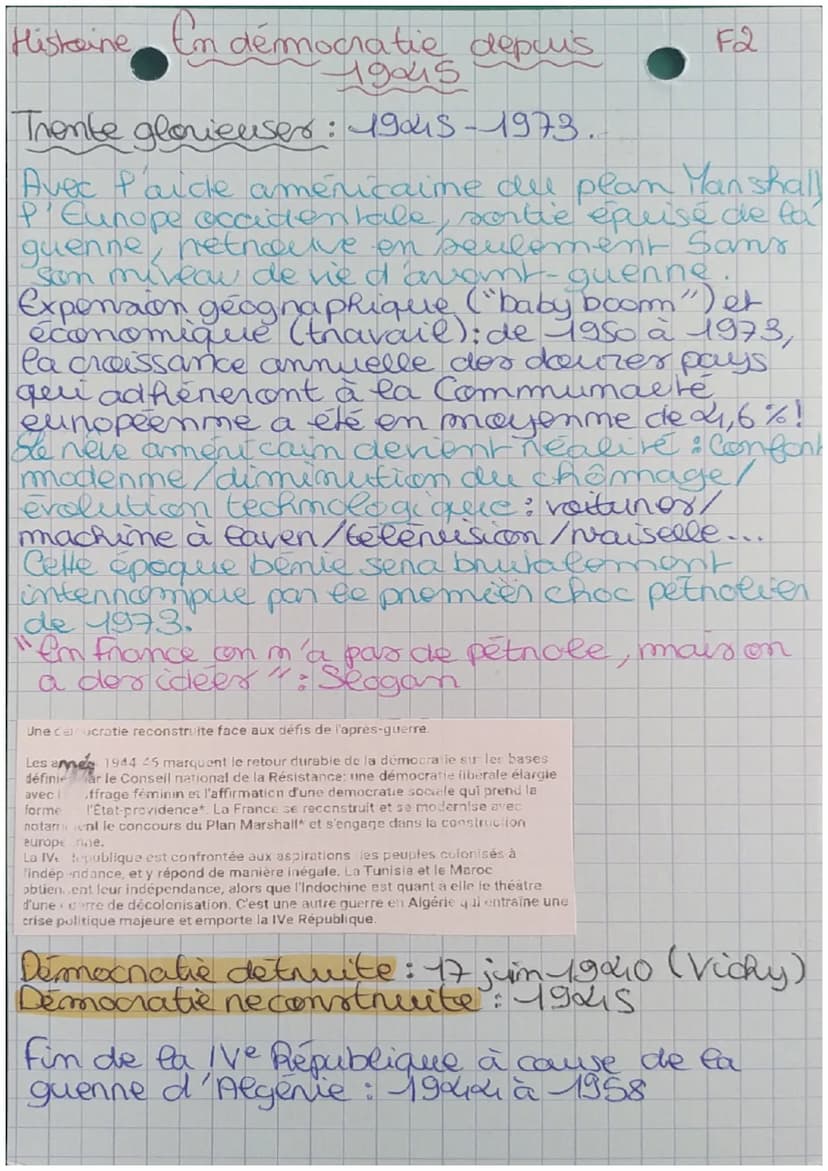 Histoire En démocratie depuis F2
1945
Trente glorieuses : 1945-1973.
Avec l'aide américaine du plan Marshall
l'Europe occidentale, sortie épuisé de la
guerre, retrouve en seulement 5ans
son niveau de vie d'avant-guerre.
Expension géographique ("baby boom") et
économique (travail): de 1950 à 1973,
la croissance annuelle des douzes pays
qui adhéreront à la Communauté
européenne a été en moyenne de 4,6 %!
Le rêve américain devient réalité : Confort
moderne/diminution du chômage/
évolution technologique : voitures/
machine à laver/télévision/vaiselle...
Cette époque bénie sera brutalement
interrompue par le premier choc pétrolier
de 1973.
"En France on n'a pas de pétrole, mais on
a des idées" : Slogan
Une démocratie reconstruite face aux défis de l'après-guerre.
Les années 1944-45 marquent le retour durable de la démocratie sur les bases
définies par le Conseil national de la Résistance: une démocratie libérale élargie
avec suffrage féminin et l'affirmation d'une democratie sociale qui prend la
forme l'État-providence*. La France se reconstruit et se modernise avec
notamment le concours du Plan Marshall* et s'engage dans la construction
européenne.
La IVe République est confrontée aux aspirations des peuples colonisés à
l'indépendance, et y répond de manière inégale. La Tunisie et le Maroc
obtiennent leur indépendance, alors que l'Indochine est quant à elle le théâtre
d'une guerre de décolonisation. C'est une autre guerre en Algérie qui entraîne une
crise politique majeure et emporte la IVe République.
Démocratie détruite : 17 juin 1940 (Vichy)
Démocratie reconstruite : 1945
Fin de la IVe République à cause de la
guerre d'Algérie : 1944 à 1958